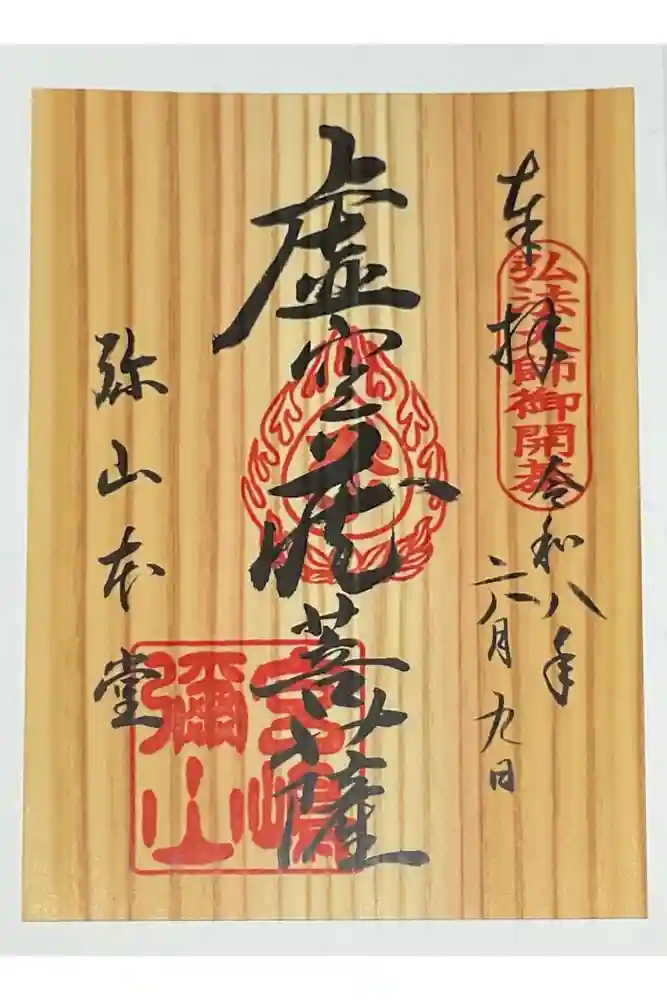 奉拝
弘法大師御開基
令和八年
六月九日
虚空蔵菩薩
弥山本堂
宮嶋
彌山